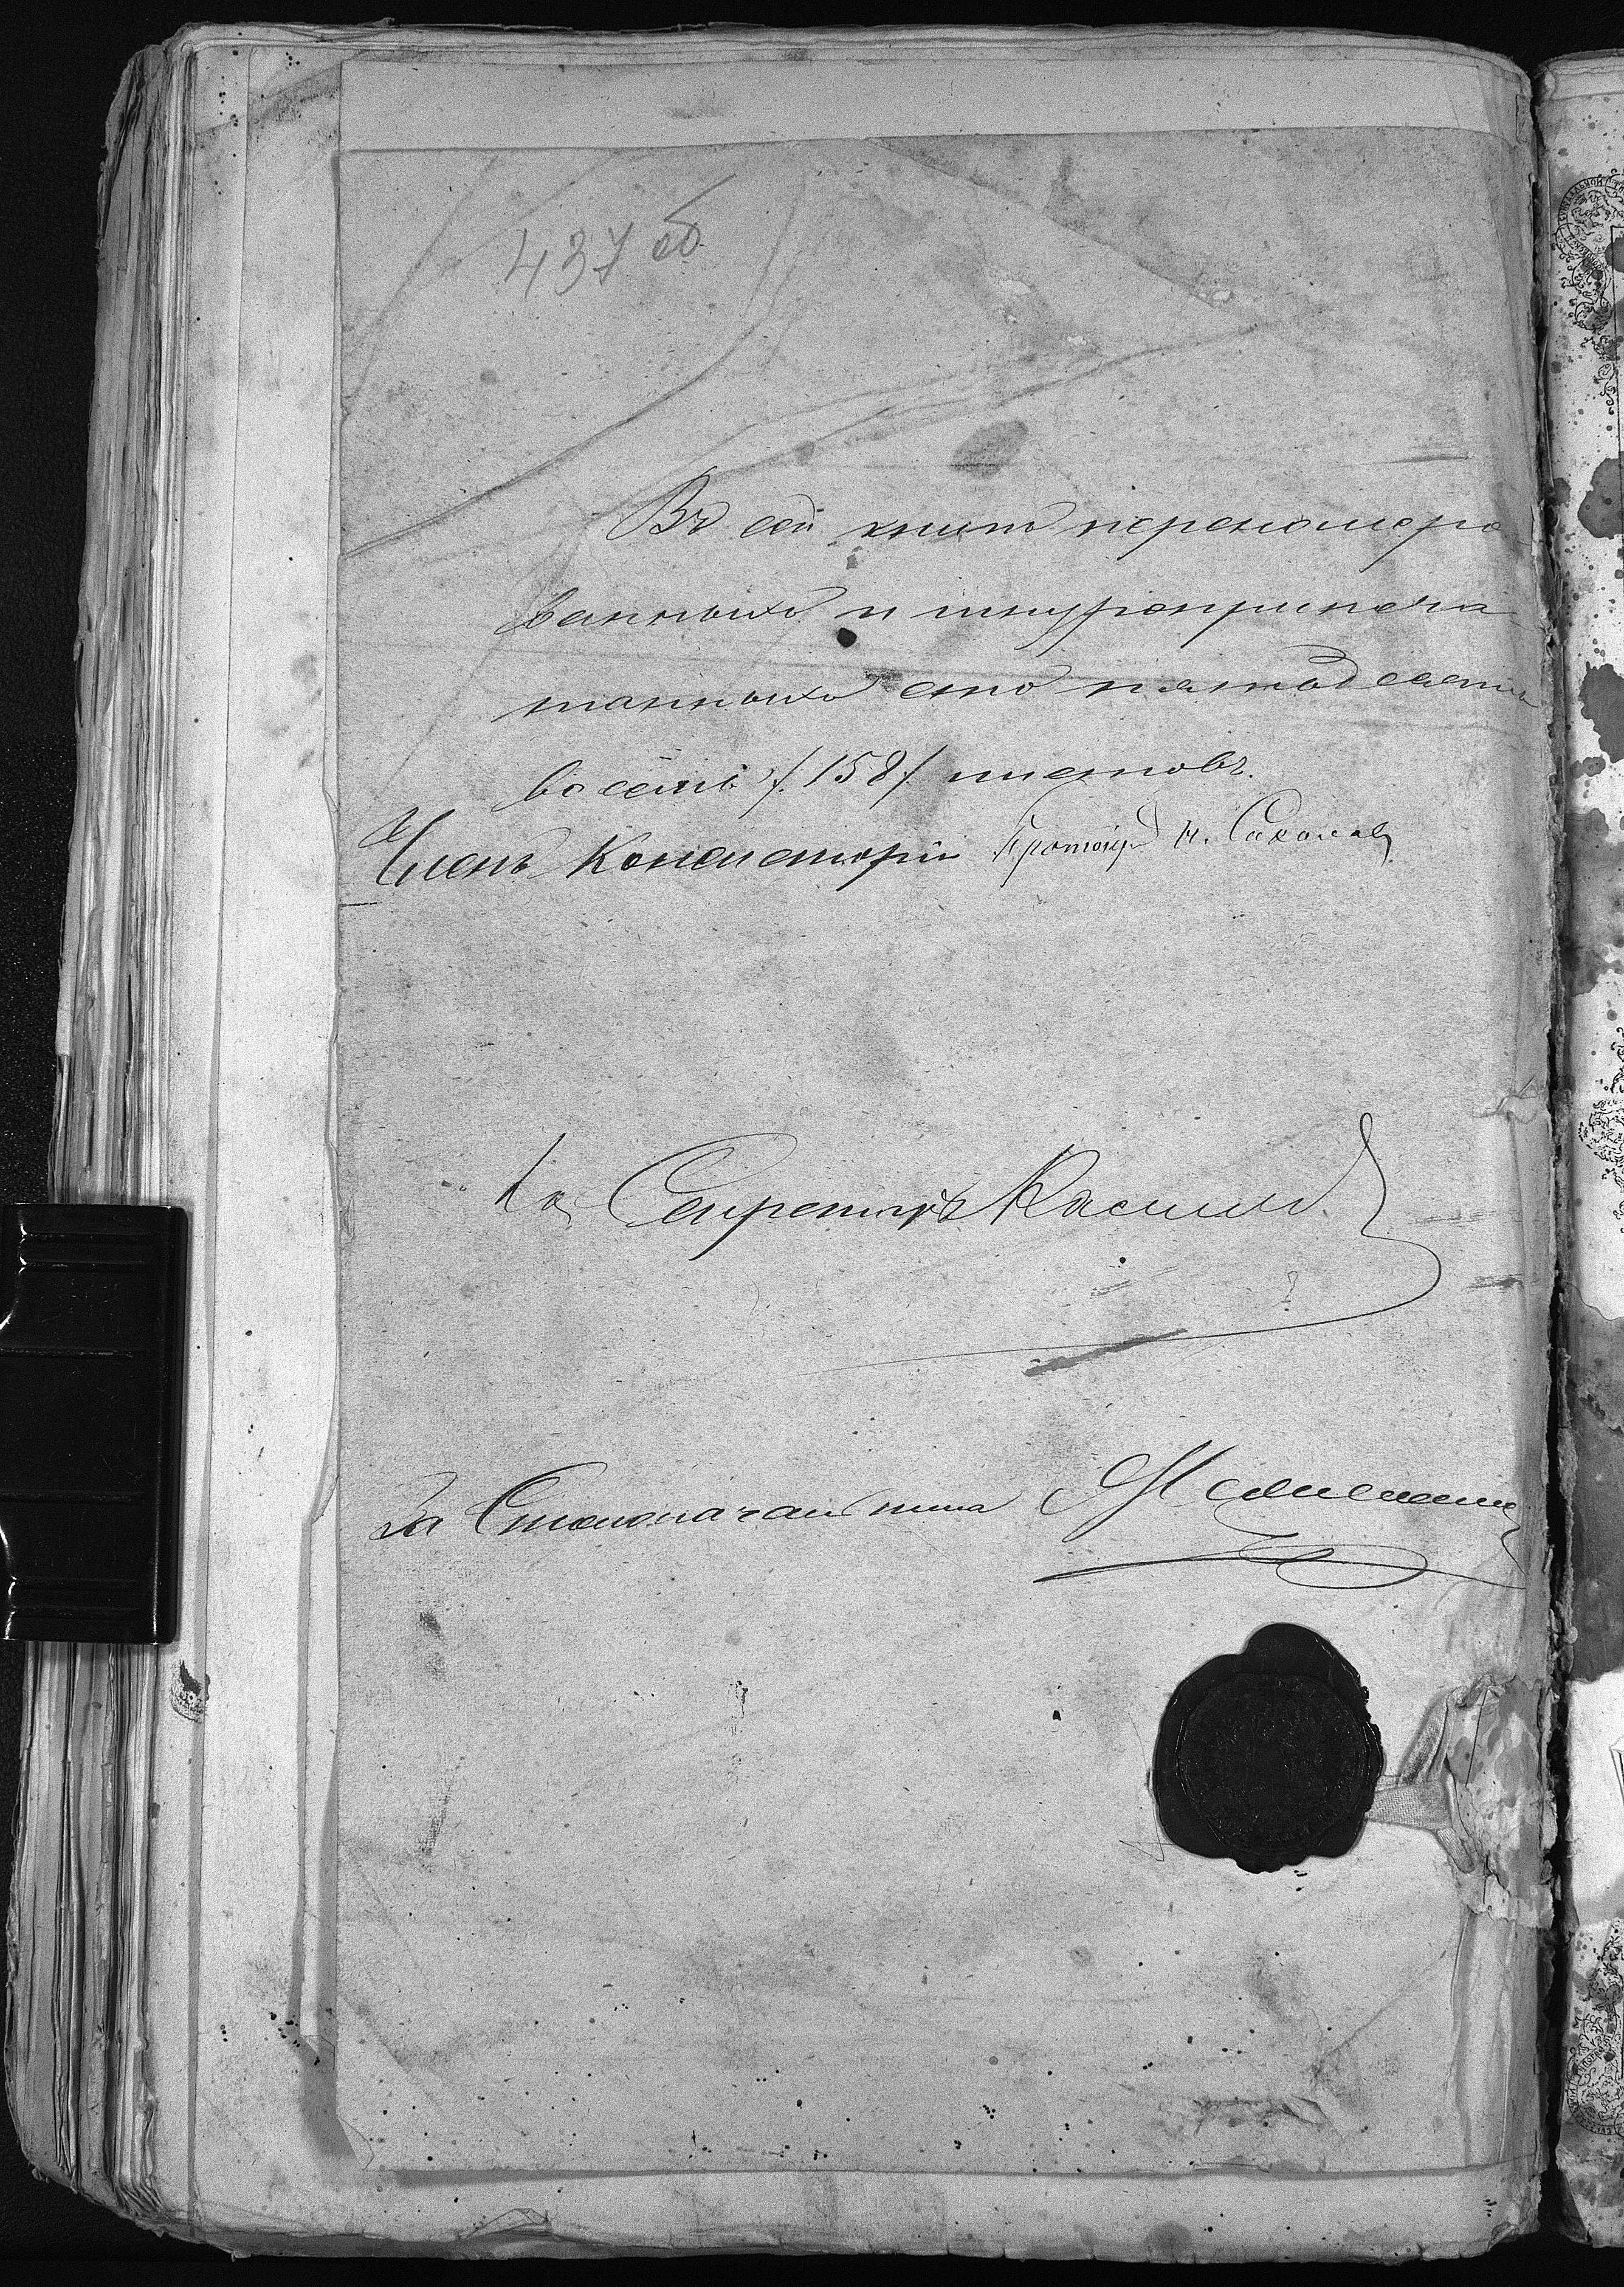 437 об
Въ сей книгѣ переномеро
ванныхъ и шнуроприпеча
танныхъ сто пятьдесятъ
восемь /158/ листовъ.
Членъ Консисторіи Протоіер. Н. Соколовъ
За Секретаря
За Столоначальника